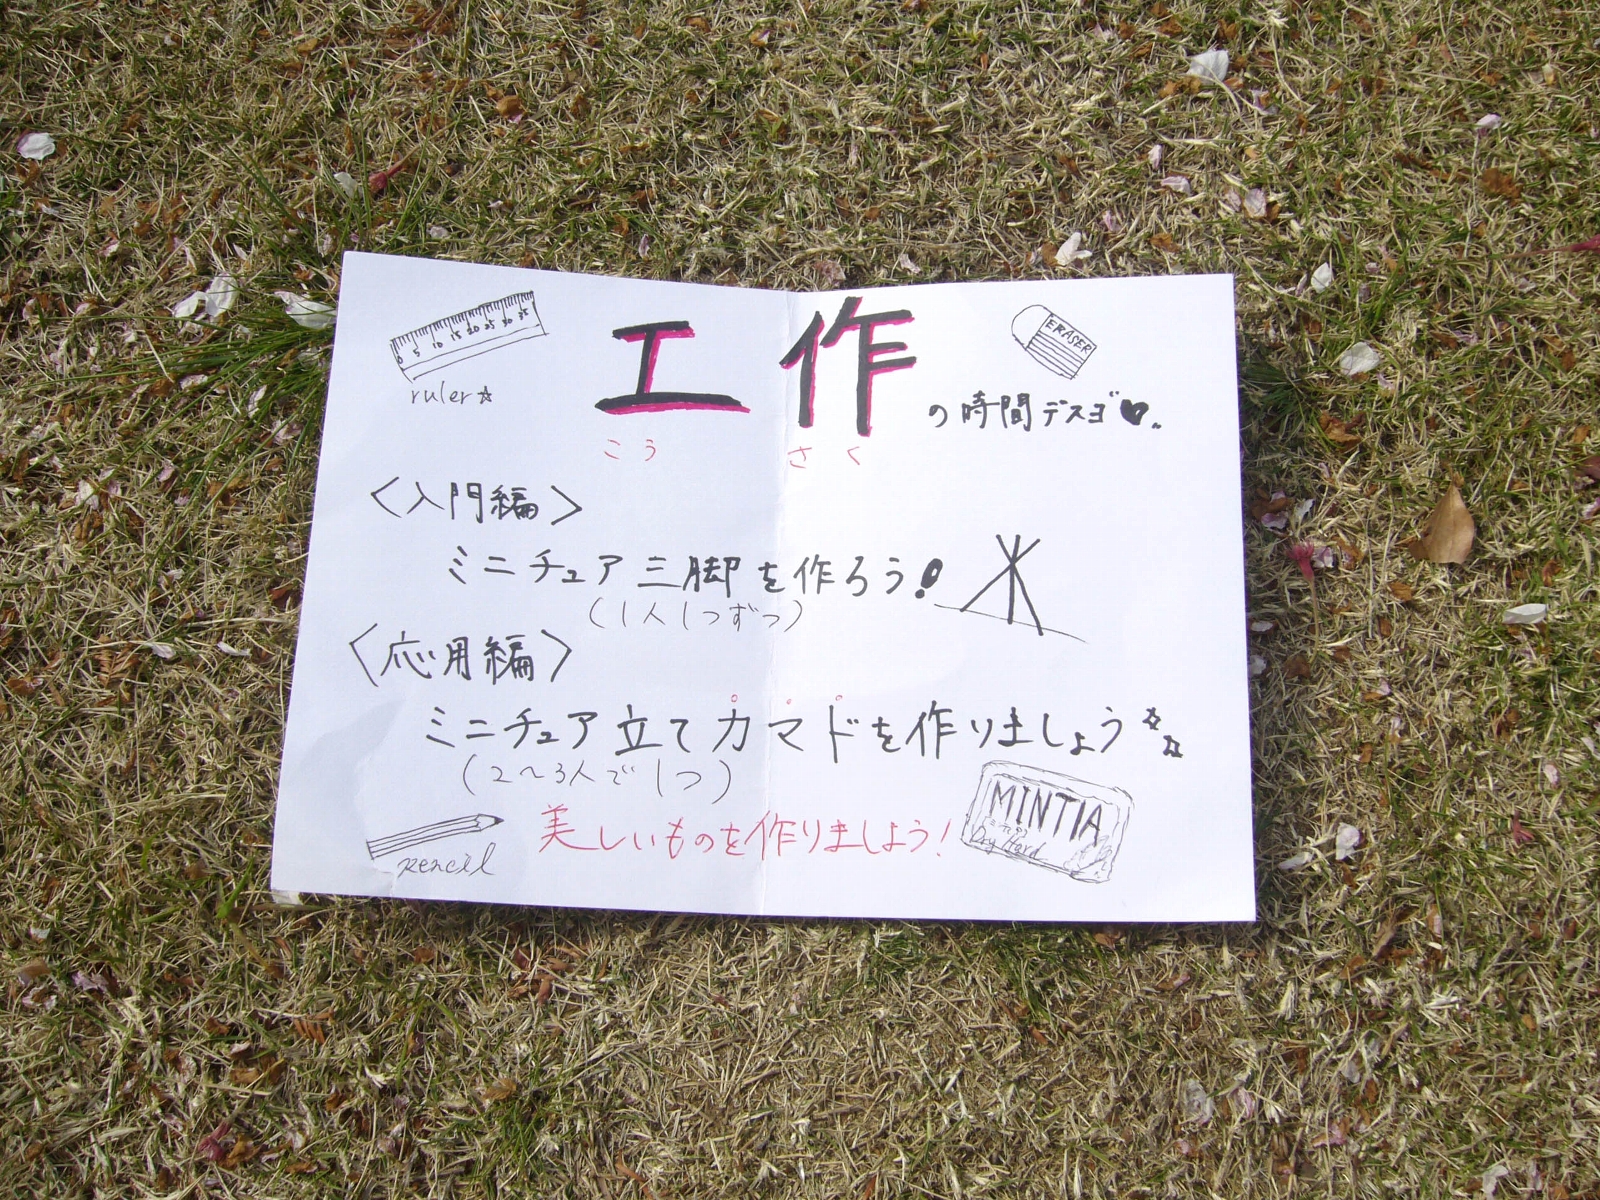 0 5 10 15 20 25 30 35
ruler☆
工作の時間デスヨ♥
こうさく
ERASER
〈入門編〉
ミニチュア三脚を作ろう!
(1人1つずつ)
〈応用編〉
ミニチュア立てカマドを作りましょう☆☆
(2〜3人で1つ)
美しいものを作りましょう!
pencil
MINTIA
Dry Hard